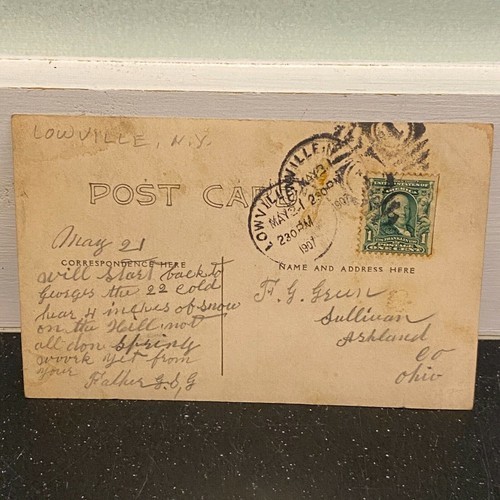 LOWVILLE, N.Y.
POST CARD
LOWVILLE, N.Y.
MAY 21
230PM
1907
LOWVILLE
MAY 21
230PM
1907
UNITED STATES OF AMERICA
FRANKLIN
1
ONE CENT
May 21
CORRESPONDENCE HERE
will start back to
Georges the 22 cold
hear 4 inches of snow
on the Hill not
all don spring
woork yet from
your
Father J.S,G
NAME AND ADDRESS HERE
F. G. Green
Sullivan
Ashland
Co
Ohio